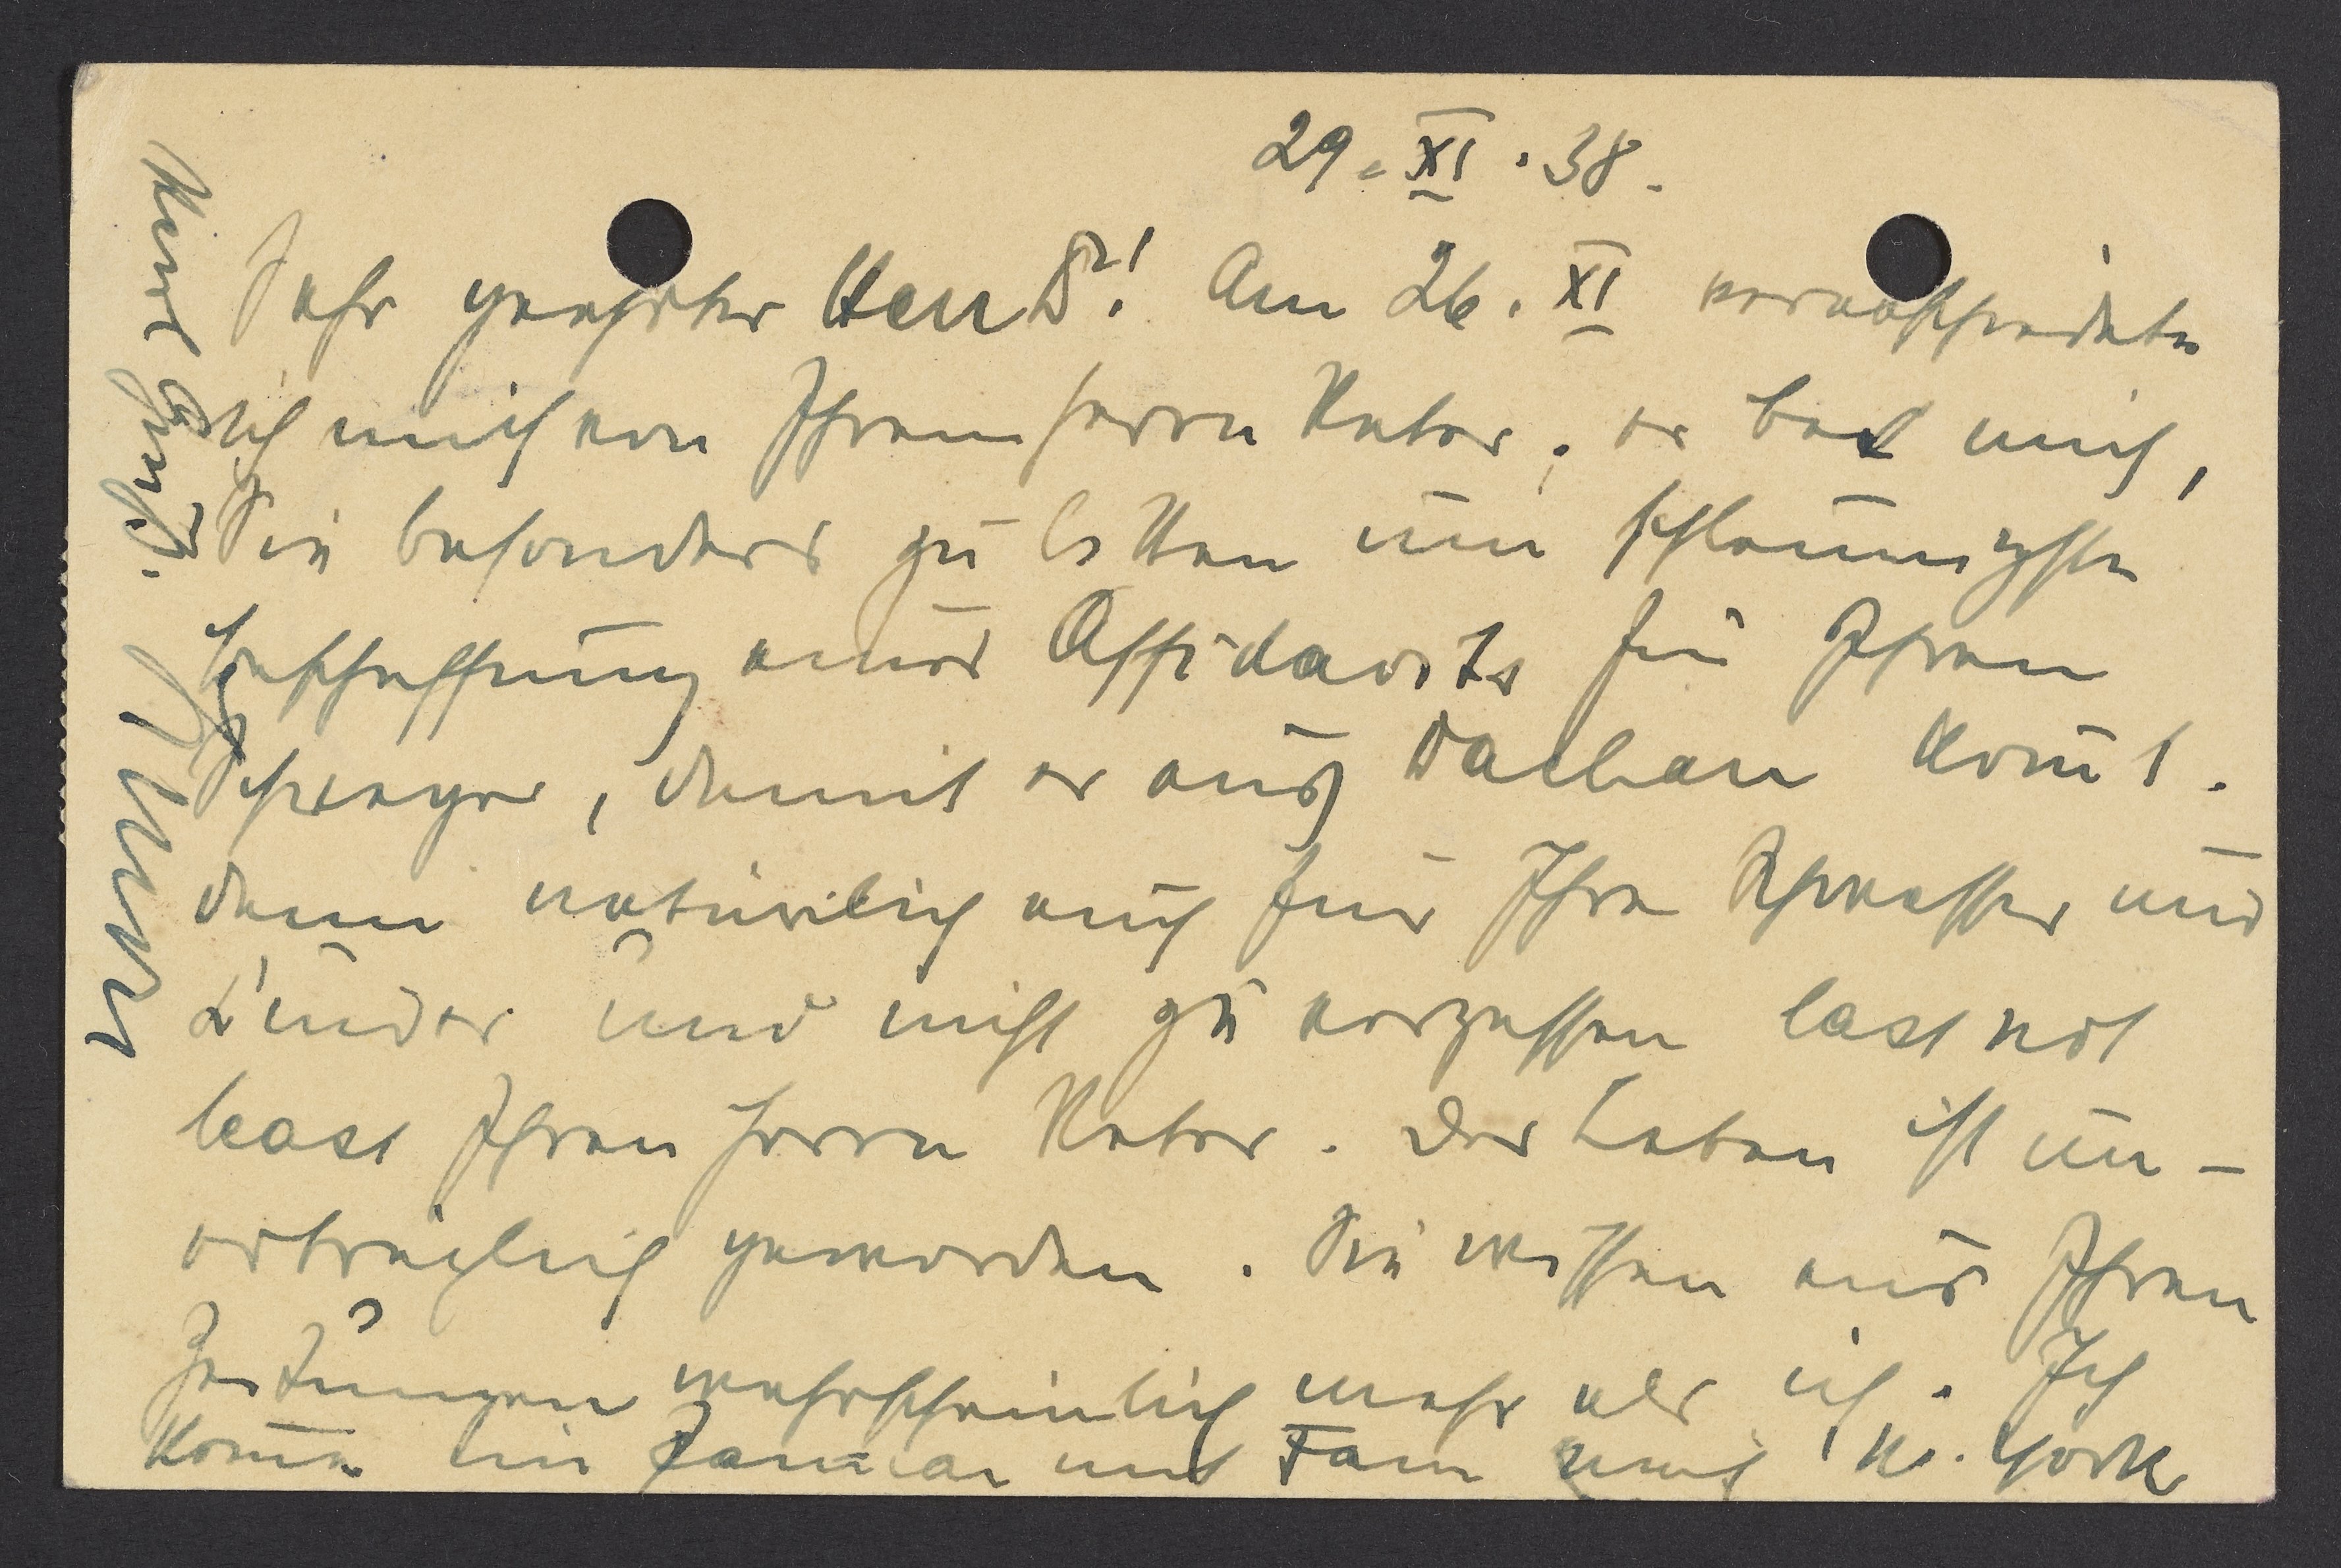 29. XI. 38.
Sehr geehrter Herr Dr! Am 26. XI verabschiedete
ich mich von Ihrem Herrn Vater; er bat mich,
Sie besonders zu bitten um schleunigste
Beschaffung eines Affidavits für Ihren
Schwager, damit er aus Dachau komt.
dann natürlich auch für Ihre Schwester und
Kinder und nicht zu vergessen last not
least Ihren Herrn Vater. Das Leben ist un-
erträglich geworden. Sie wissen aus Ihren
Zeitungen wahrscheinlich mehr als ich. Ich
kome im Januar mit Fam nach N. York
Grüße.